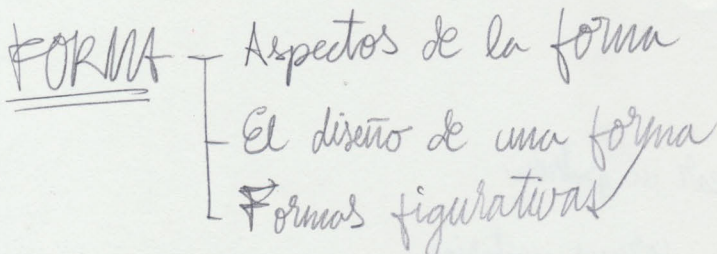 FORMA - Aspectos de la forma
- El diseño de una forma
- Formas figurativas